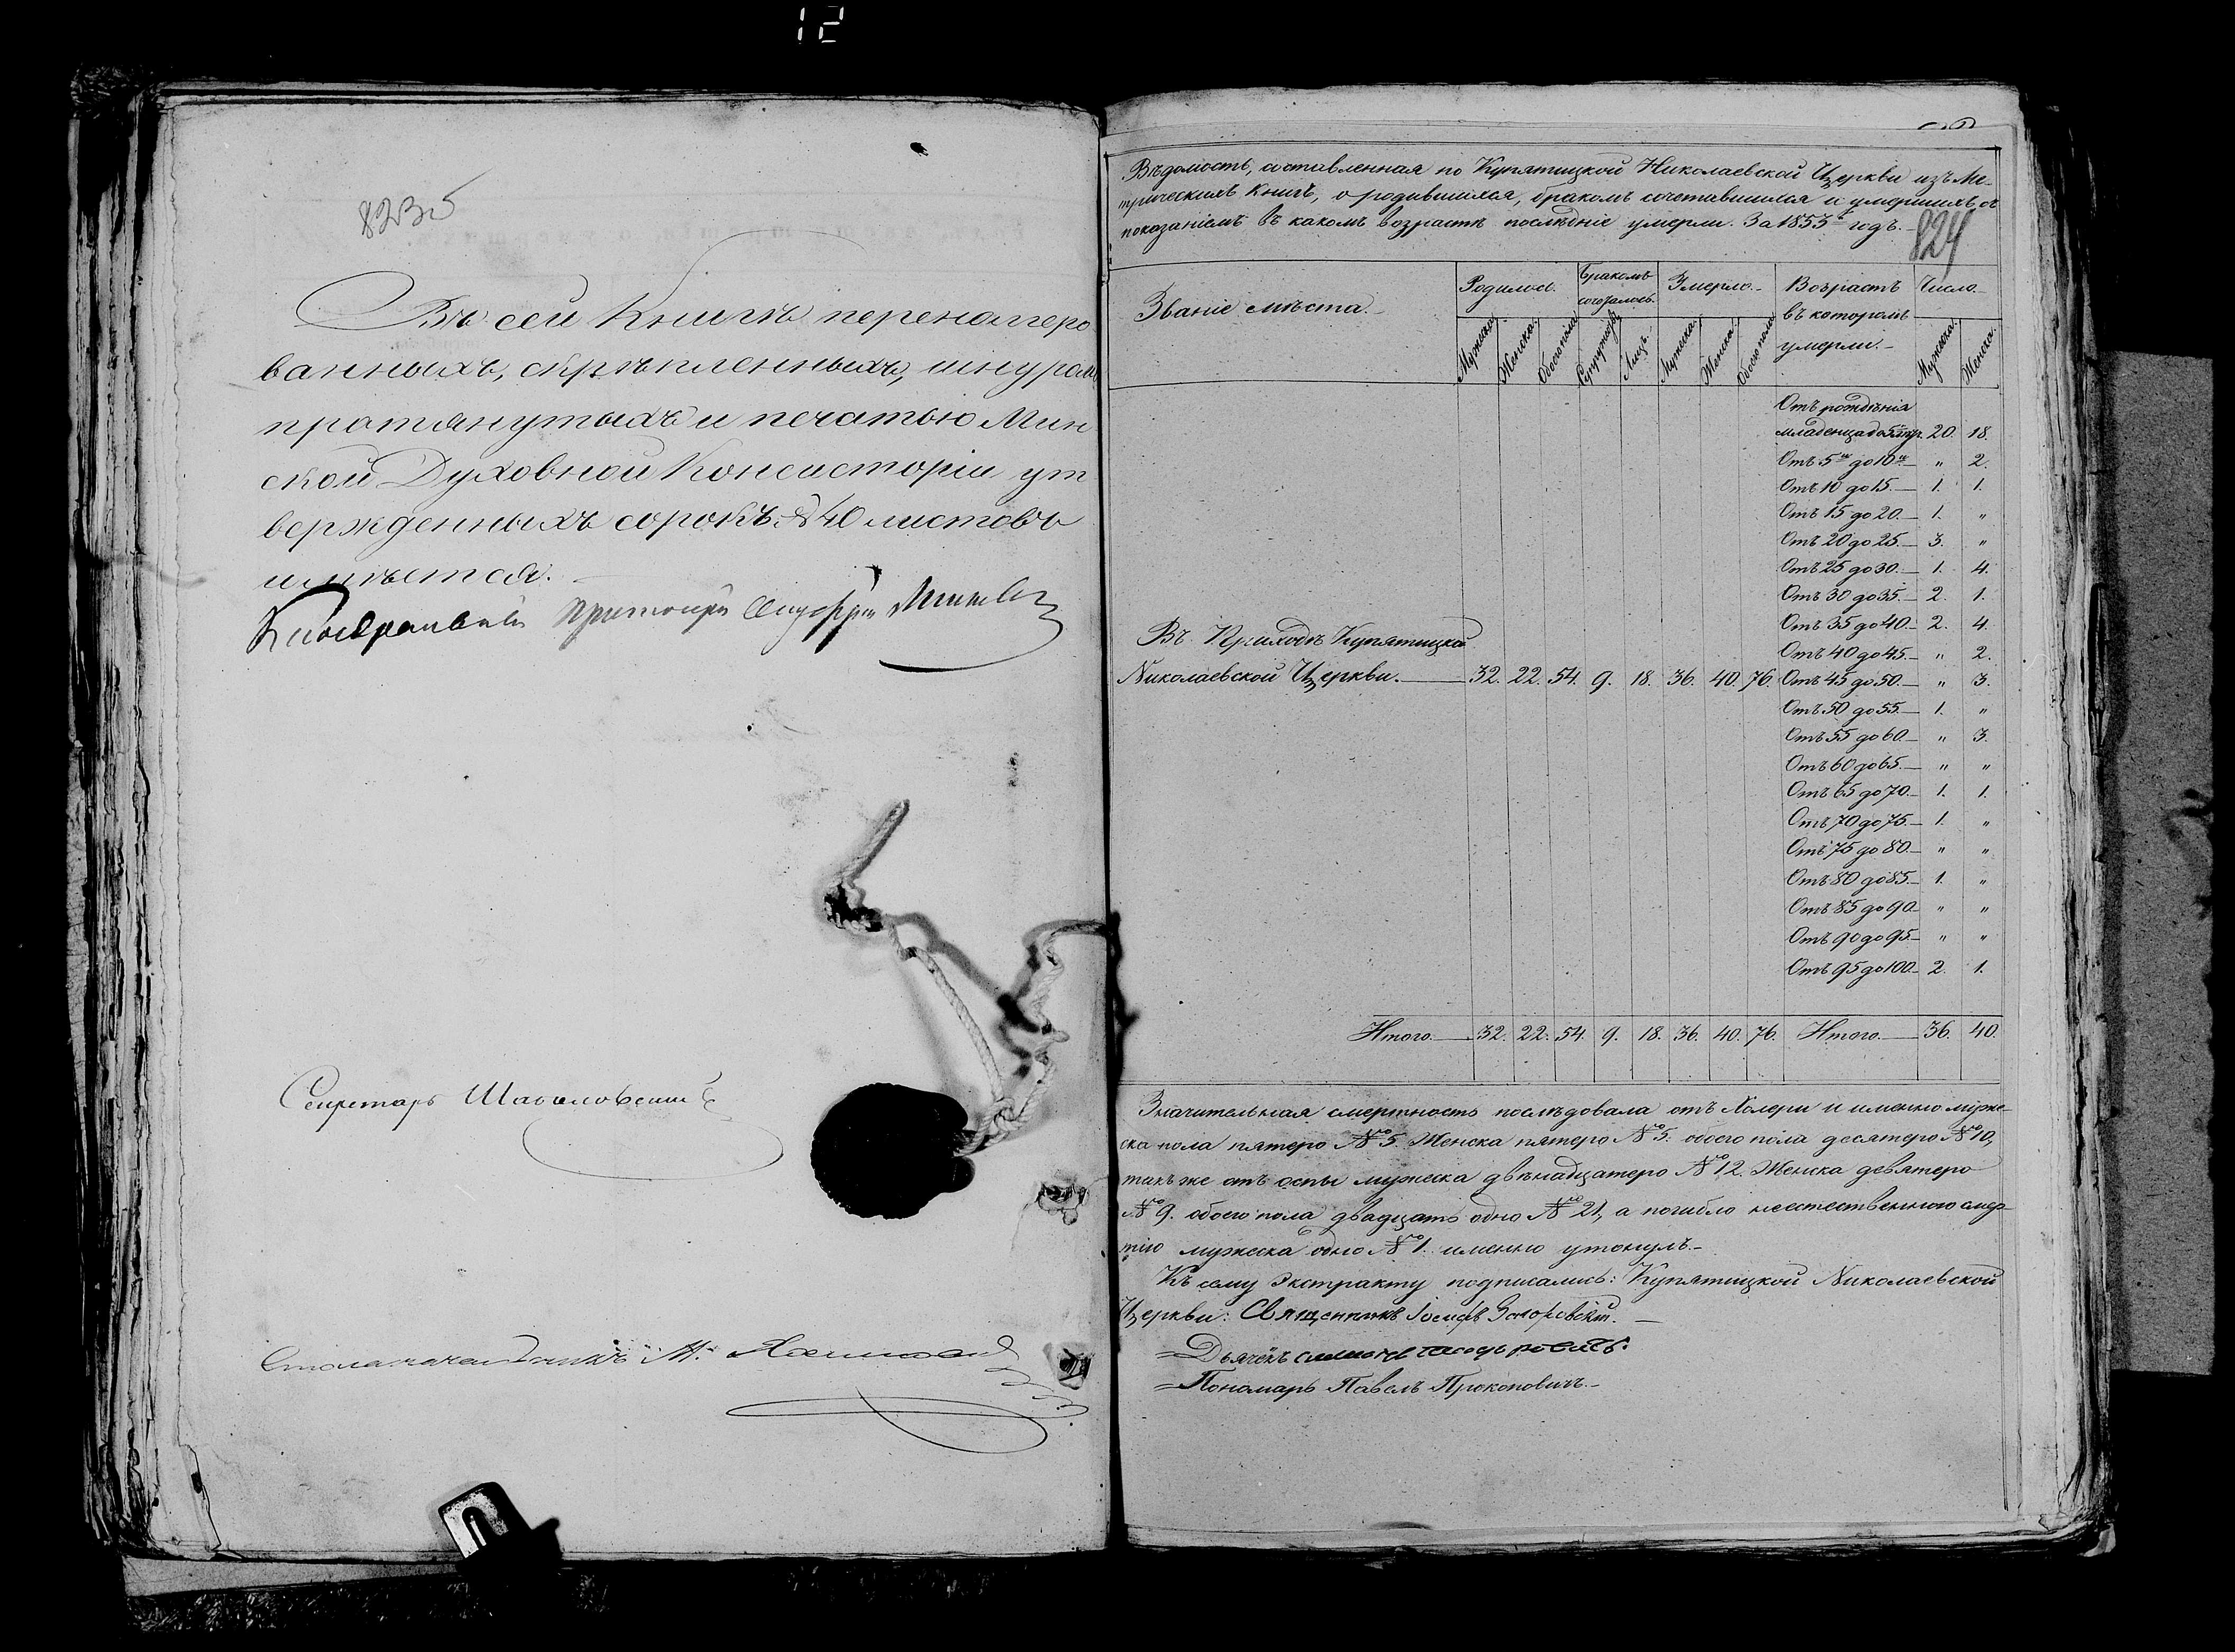 12
823об
Въ сей Книгѣ перенумеро
ванныхъ, скрѣпленныхъ, шнуромъ
протянутыхъ и печатью Мин
ской Духовной Консисторіи ут
вержденныхъ сорокъ 40 листовъ
имѣется.
Протоіерей
Секретарь
Столоначальникъ
Вѣдомость, составленная по Купятицкой Николаевской Церкви изъ Ме-
трическихъ Книгъ, о родившихся, бракомъ сочетавшихся и умершихъ съ
показаніемъ въ какомъ возрастѣ послѣдніе умерли. За 1853й годъ.
824
Званіе мѣста. Родилось. Бракомъ сочеталось. Умерло. Возрастъ въ которомъ умерли. Число.
Мужска. Женска. Обоего пола Супружес. Лицъ. Мужска. Женска. Обоего пола Мужска. Женска.
Отъ рожденія
младенца до 5ти лѣтъ. 20. 18.
Отъ 5ти до 10ти — " 2.
Отъ 10 до 15. — 1. 1.
Отъ 15 до 20. — 1. "
Отъ 20 до 25. — 3. "
Отъ 25 до 30. — 1. 4.
Отъ 30 до 35. — 2. 1.
Отъ 35 до 40. — 2. 4.
Въ Приходѣ Купятицкой
Отъ 40 до 45. — " 2.
Николаевской Церкви. — 32. 22. 54. 9. 18. 36. 40. 76. Отъ 45 до 50. — " 3.
Отъ 50 до 55. — 1. "
Отъ 55 до 60. — " 3.
Отъ 60 до 65. — " "
Отъ 65 до 70. — 1. 1.
Отъ 70 до 75. — 1. "
Отъ 75 до 80. — " "
Отъ 80 до 85. — 1. "
Отъ 85 до 90. — " "
Отъ 90 до 95. — " "
Отъ 95 до 100. — 2. 1.
Итого. — 32. 22. 54. 9. 18. 36. 40. 76. Итого. — 36. 40.
Значительная смертность послѣдовала отъ Холеры и именно муже-
ска пола пятеро № 5. Женска пятеро № 5. обоего пола десятеро № 10,
такъ же отъ оспы мужеска двѣнадцатеро № 12. Женска девятеро
№ 9. обоего пола двадцать одно № 21, а погибло неестественною смер-
тію мужеска одно № 1. именно утонулъ. —
Къ сему Экстракту подписались: Купятицкой Николаевской
Церкви: Священникъ Іосифъ
= Дьячекъ
= Пономарь Павелъ Прокоповичъ. —